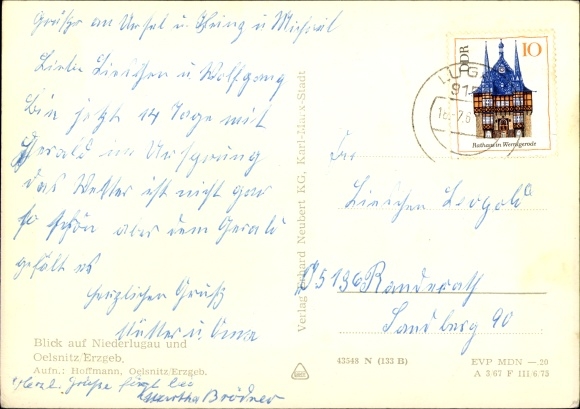 Grüße an Ursel u Heinz u Michael
Liebe Lieschen u Wolfgang
Bin jetzt 14 Tage mit
Gerald im Ursprung
das Wetter ist nicht gar
so schön aber dem Gerald
gefällt es
herzlichen Gruß
Mutter u. Oma
Blick auf Niederlugau und
Oelsnitz/Erzgeb.
Aufn.: Hoffmann, Oelsnitz/Erzgeb.
Herzl. Grüße fügt bei
Martha Brödner
Verlag Erhard Neubert KG, Karl-Marx-Stadt
DDR
10
Rathaus in Wernigerode
LUG
915
Lieschen Leopold
5136 Randerath
Sandberg 90
43548 N (133 B)
EVP MDN —.20
A 3 67 F III 6/75